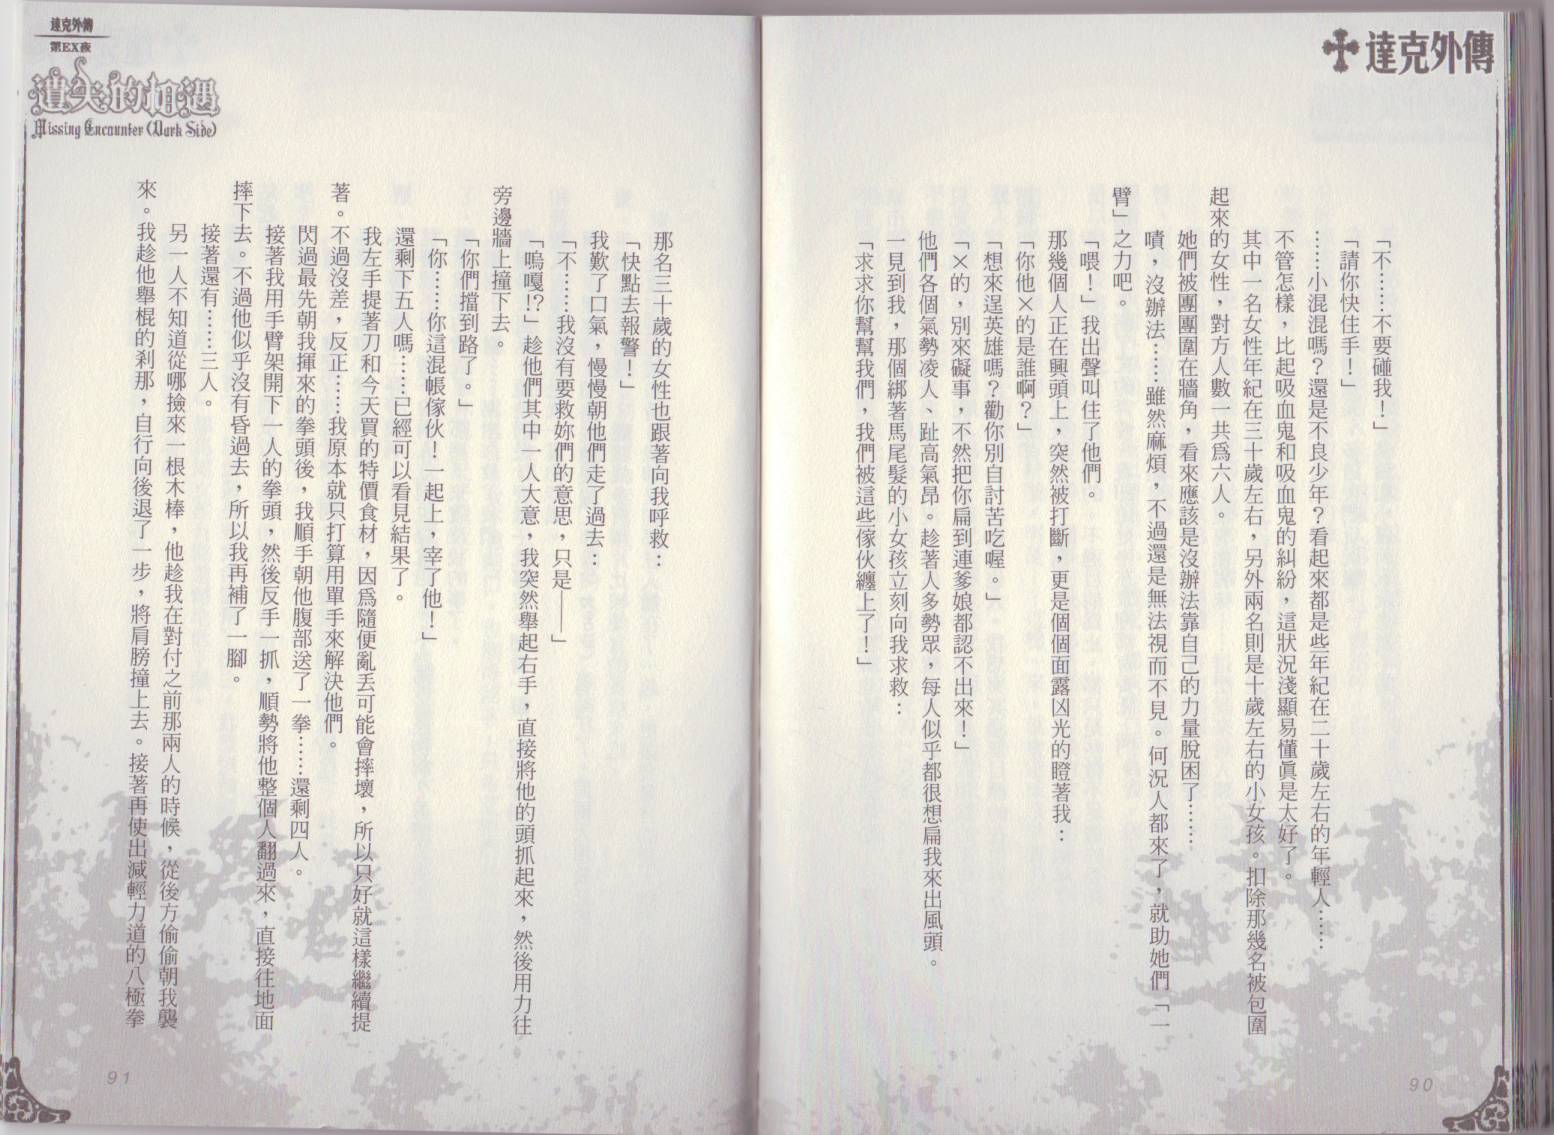 達克外傳
「不……不要碰我！」
「請你快住手！」
……小混混嗎？還是不良少年？看起來都是些年紀在二十歲左右的年輕人……
不管怎樣，比起吸血鬼和吸血鬼的糾紛，這狀況淺顯易懂真是太好了。
其中一名女性年紀在三十歲左右，另外兩名則是十歲左右的小女孩。扣除那幾名被包圍
起來的女性，對方人數一共為六人。
她們被團團圍在牆角，看來應該是沒辦法靠自己的力量脫困了……
嘖，沒辦法……雖然麻煩，不過還是無法視而不見。何況人都來了，就助她們「一
臂」之力吧。
「喂！」我出聲叫住了他們。
那幾個人正在興頭上，突然被打斷，更是個個面露凶光的瞪著我：
「你他×的是誰啊？」
「想來逞英雄嗎？勸你別自討苦吃喔。」
「×的，別來礙事，不然把你扁到連爹娘都認不出來！」
他們各個氣勢凌人、趾高氣昂。趁著人多勢眾，每人似乎都很想扁我來出風頭。
一見到我，那個綁著馬尾髮的小女孩立刻向我求救：
「求求你幫幫我們，我們被這些傢伙纏上了！」
90
達克外傳
第EX夜
遺失的相遇
Missing Encounter (Dark Side)
那名三十歲的女性也跟著向我呼救：
「快點去報警！」
我歎了口氣，慢慢朝他們走了過去：
「不……我沒有要救妳們的意思，只是——」
「嗚嘎!?」趁他們其中一人大意，我突然舉起右手，直接將他的頭抓起來，然後用力往
旁邊牆上撞下去。
「你們擋到路了。」
「你……你這混帳傢伙！一起上，宰了他！」
還剩下五人嗎……已經可以看見結果了。
我左手提著刀和今天買的特價食材，因為隨便亂丟可能會摔壞，所以只好就這樣繼續提
著。不過沒差，反正……我原本就只打算用單手來解決他們。
閃過最先朝我揮來的拳頭後，我順手朝他腹部送了一拳……還剩四人。
接著我用手臂架開下一人的拳頭，然後反手一抓，順勢將他整個人翻過來，直接往地面
摔下去。不過他似乎沒有昏過去，所以我再補了一腳。
接著還有……三人。
另一人不知道從哪撿來一根木棒，他趁我在對付之前那兩人的時候，從後方偷偷朝我襲
來。我趁他舉棍的剎那，自行向後退了一步，將肩膀撞上去。接著再使出減輕力道的八極拳
91